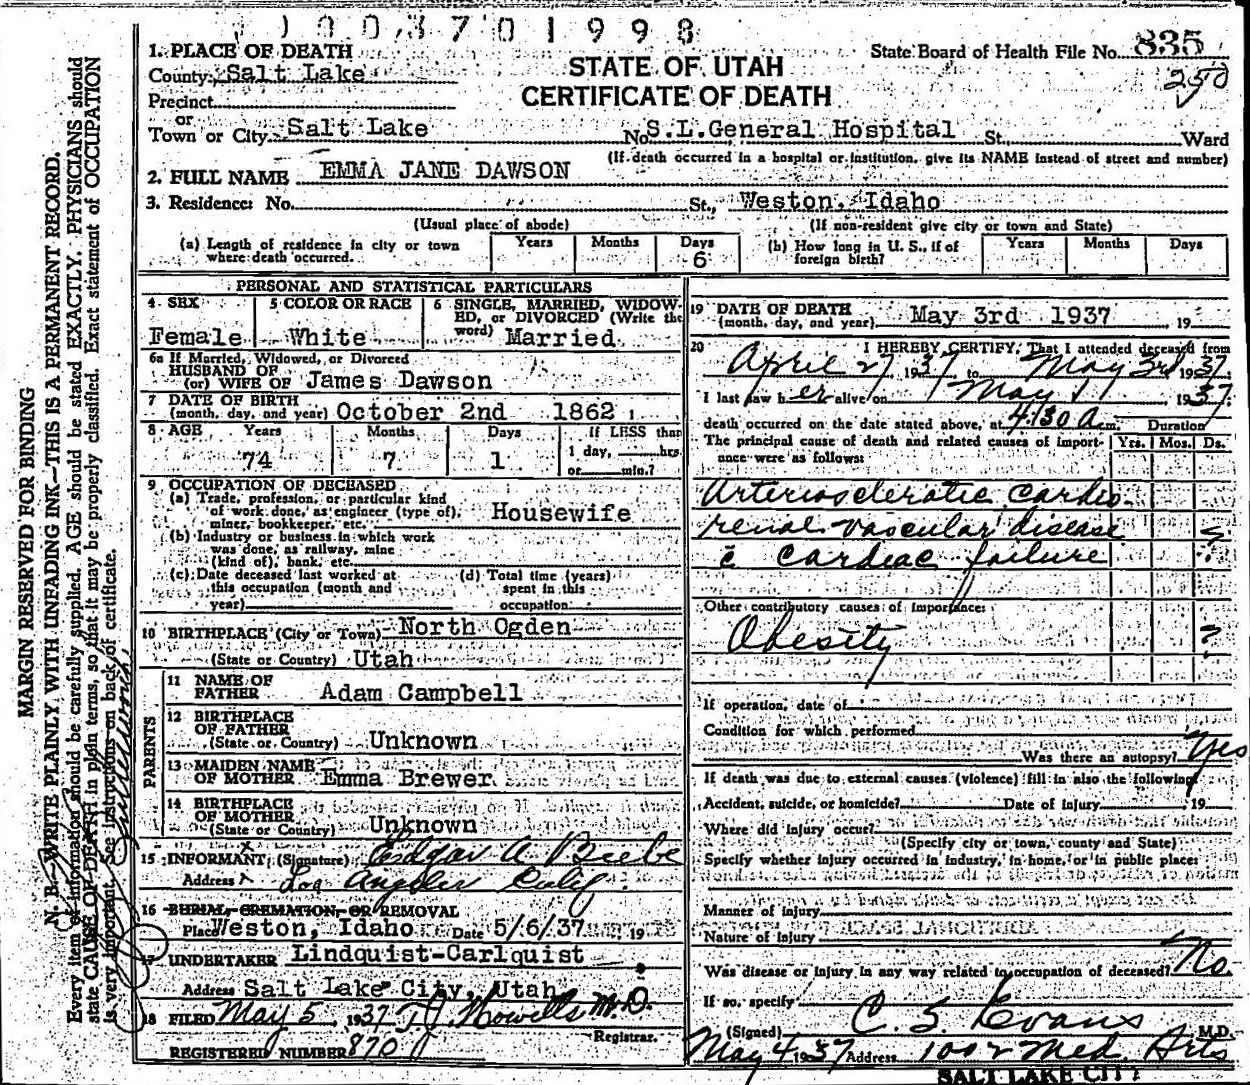 1003701998
1. PLACE OF DEATH
County Salt Lake
Precinct
or
Town or City Salt Lake
STATE OF UTAH
CERTIFICATE OF DEATH
State Board of Health File No. 835
250
No. S.L. General Hospital St. Ward
(If death occurred in a hospital or institution, give its NAME instead of street and number)
2. FULL NAME EMMA JANE DAWSON
3. Residence: No. St., Weston, Idaho
(Usual place of abode) (If non-resident give city or town and State)
(a) Length of residence in city or town where death occurred. Years Months Days 6
(b) How long in U. S., if of foreign birth? Years Months Days
PERSONAL AND STATISTICAL PARTICULARS
4 SEX Female
5 COLOR OR RACE White
6 SINGLE, MARRIED, WIDOWED, or DIVORCED (Write the word) Married
6a If Married, Widowed, or Divorced
HUSBAND OF
(or) WIFE OF James Dawson
7 DATE OF BIRTH
(month, day, and year) October 2nd 1862
8 AGE Years Months Days If LESS than
74 7 1 1 day, hrs.
or min.?
9 OCCUPATION OF DECEASED
(a) Trade, profession, or particular kind
of work done, as engineer (type of),
miner, bookkeeper, etc. Housewife
(b) Industry or business in which work
was done, as railway, mine
(kind of), bank, etc.
(c) Date deceased last worked at
this occupation (month and
year)
(d) Total time (years)
spent in this
occupation
10 BIRTHPLACE (City or Town) North Ogden
(State or Country) Utah
PARENTS
11 NAME OF
FATHER Adam Campbell
12 BIRTHPLACE
OF FATHER
(State or Country) Unknown
13 MAIDEN NAME
OF MOTHER Emma Brewer
14 BIRTHPLACE
OF MOTHER
(State or Country) Unknown
15 INFORMANT (Signature) Edgar A Beebe
Address Los Angeles Calif.
16 BURIAL, CREMATION, OR REMOVAL
Place Weston, Idaho Date 5/6/37 19
17 UNDERTAKER Lindquist-Carlquist
Address Salt Lake City, Utah
18 FILED May 5, 1937 T J Howells M.D.
Registrar.
REGISTERED NUMBER 870
19 DATE OF DEATH
(month, day, and year) May 3rd 1937, 19
20 I HEREBY CERTIFY, That I attended deceased from
April 27 1937 to May 3rd 1937
I last saw her alive on May 1 1937
death occurred on the date stated above, at 4:30 A m. Duration
The principal cause of death and related causes of importance were as follows: Yrs. Mos. Ds.
Arteriosclerotic cardio-
renal vascular disease ?
c̄ cardiac failure
Other contributory causes of importance:
Obesity ?
If operation, date of
Condition for which performed
Was there an autopsy? Yes
If death was due to external causes (violence) fill in also the following:
Accident, suicide, or homicide? Date of injury , 19
Where did injury occur?
(Specify city or town, county and State)
Specify whether injury occurred in industry, in home, or in public place:
Manner of injury
Nature of injury
Was disease or injury in any way related to occupation of deceased? No.
If so, specify
(Signed) C. S. Evans M.D.
May 4 1937 Address 1002 Med. Arts
SALT LAKE CITY
MARGIN RESERVED FOR BINDING
N. B.—WRITE PLAINLY, WITH UNFADING INK—THIS IS A PERMANENT RECORD.
Every item of information should be carefully supplied. AGE should be stated EXACTLY. PHYSICIANS should
state CAUSE OF DEATH in plain terms, so that it may be properly classified. Exact statement of OCCUPATION
is very important. See instructions on back of certificate.